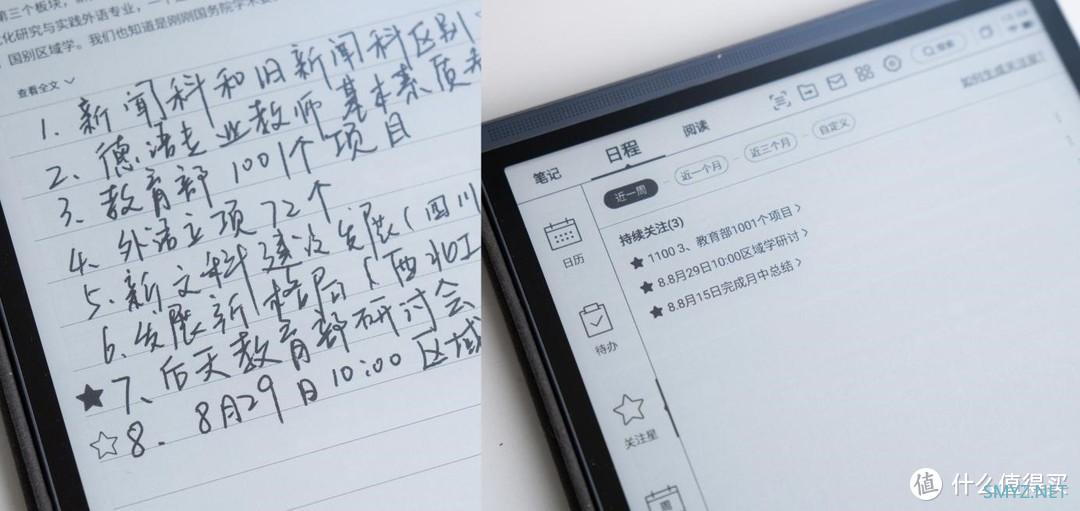 第三个板块，
化研究与实践外语专业，一个是
国别区域学。我们也知道是刚刚国务院学术委
查看全文
1、新闻科和旧新闻科区别
2、德语专业教师基本素质
3、教育部1001个项目
4、外语立项72个
5、新文科建设发展（四川
6、发展新格局（西北工
7、后天教育部研讨会
8. 8月29日10:00区域
笔记
日程
阅读
搜索
如何生成关注星？
近一周
近一个月
近三个月
自定义
日历
待办
关注星
持续关注(3)
1100 3、教育部1001个项目
8.8月29日10:00区域学研讨
8.8月15日完成月中总结
值 什么值得买
SMYZ.NET